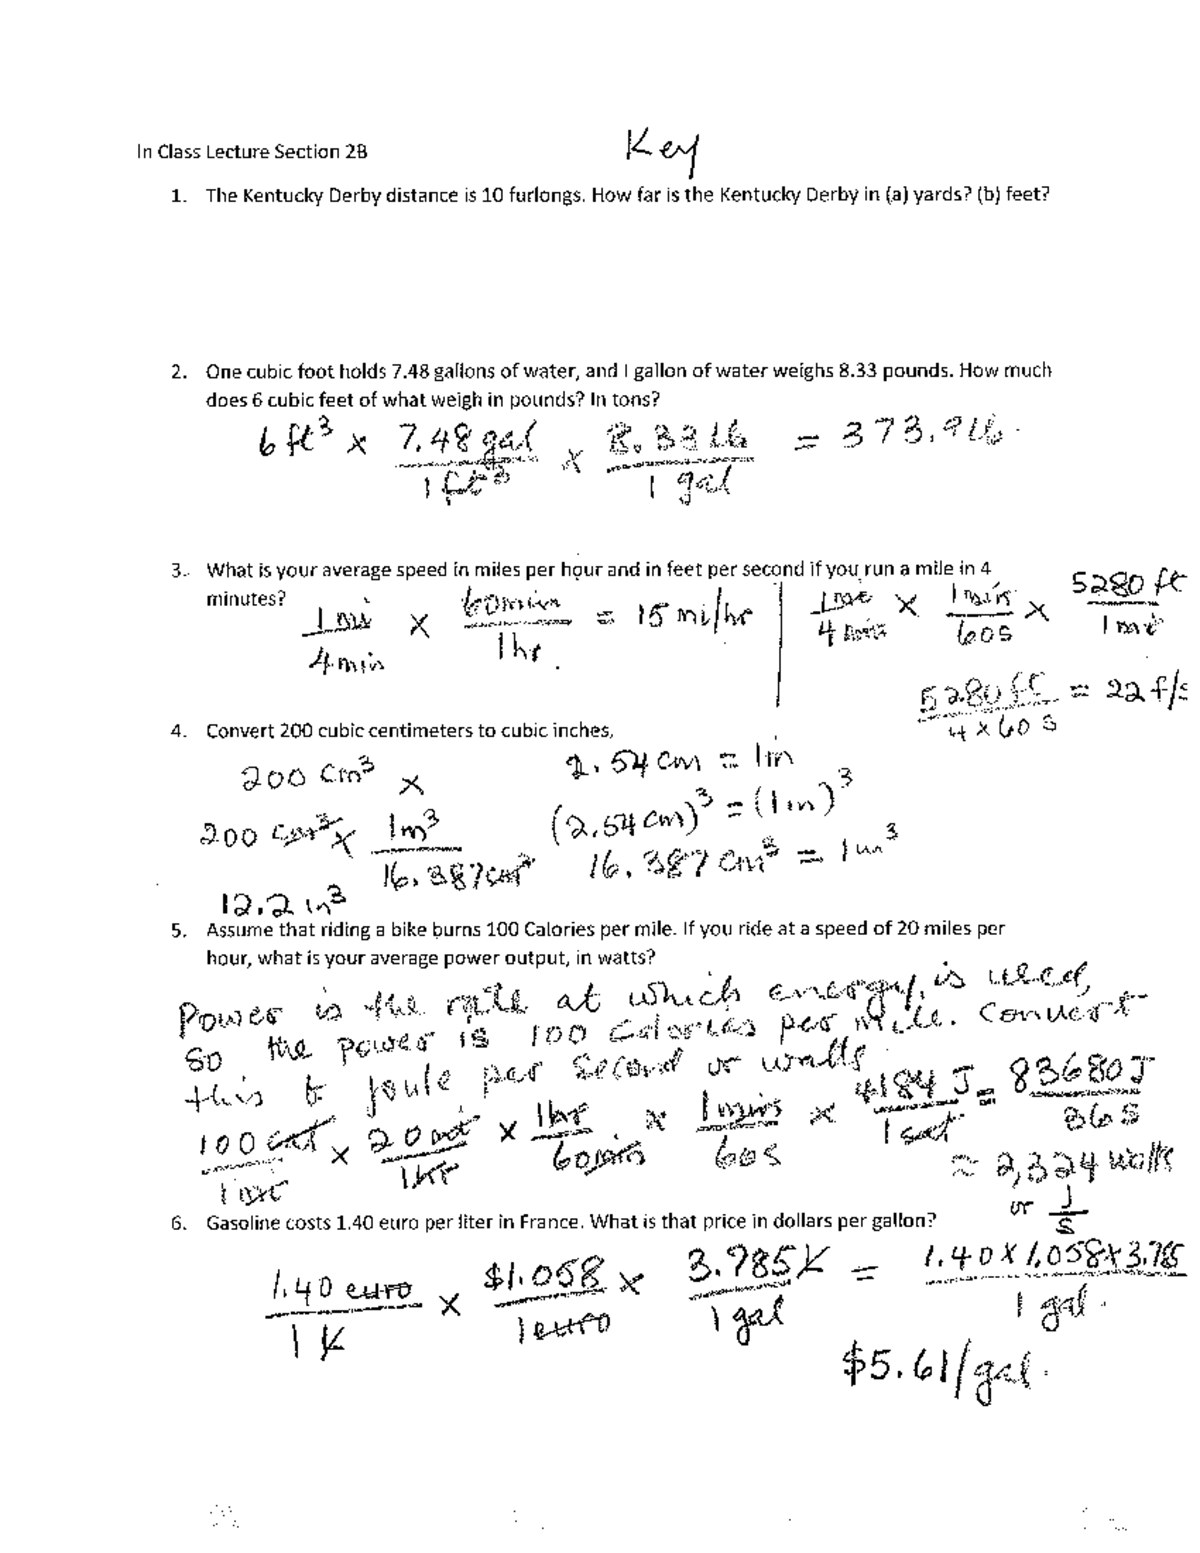 In Class Lecture Section 2B
Key
1. The Kentucky Derby distance is 10 furlongs. How far is the Kentucky Derby in (a) yards? (b) feet?
2. One cubic foot holds 7.48 gallons of water, and I gallon of water weighs 8.33 pounds. How much
does 6 cubic feet of what weigh in pounds? In tons?
6 ft³ × 7.48 gal / 1 ft³ × 8.33 lb / 1 gal = 373.9 lb.
3. What is your average speed in miles per hour and in feet per second if you run a mile in 4
minutes?
1 mi / 4 min × 60 min / 1 hr. = 15 mi/hr
1 mi / 4 min × 1 min / 60 s × 5280 ft / 1 mi
5280 ft / 4 × 60 s = 22 f/s
4. Convert 200 cubic centimeters to cubic inches,
200 cm³ ×
2.54 cm = 1 in
(2.54 cm)³ = (1 in)³
200 cm³ × 1 m³ / 16.387 cm³
16.387 cm³ = 1 in³
12.2 in³
5. Assume that riding a bike burns 100 Calories per mile. If you ride at a speed of 20 miles per
hour, what is your average power output, in watts?
Power is the rate at which energy is used,
so the power is 100 Calories per mile. Convert
this to joule per second or watts.
100 cal / 1 mi × 20 mi / 1 hr × 1 hr / 60 min × 1 min / 60 s × 4184 J / 1 cal = 83680 J / 36 s
≈ 2,324 watts
or J / s
6. Gasoline costs 1.40 euro per liter in France. What is that price in dollars per gallon?
1.40 euro / 1 L × $1.058 / 1 euro × 3.785 L / 1 gal = 1.40 × 1.058 × 3.785 / 1 gal.
$5.61/gal.